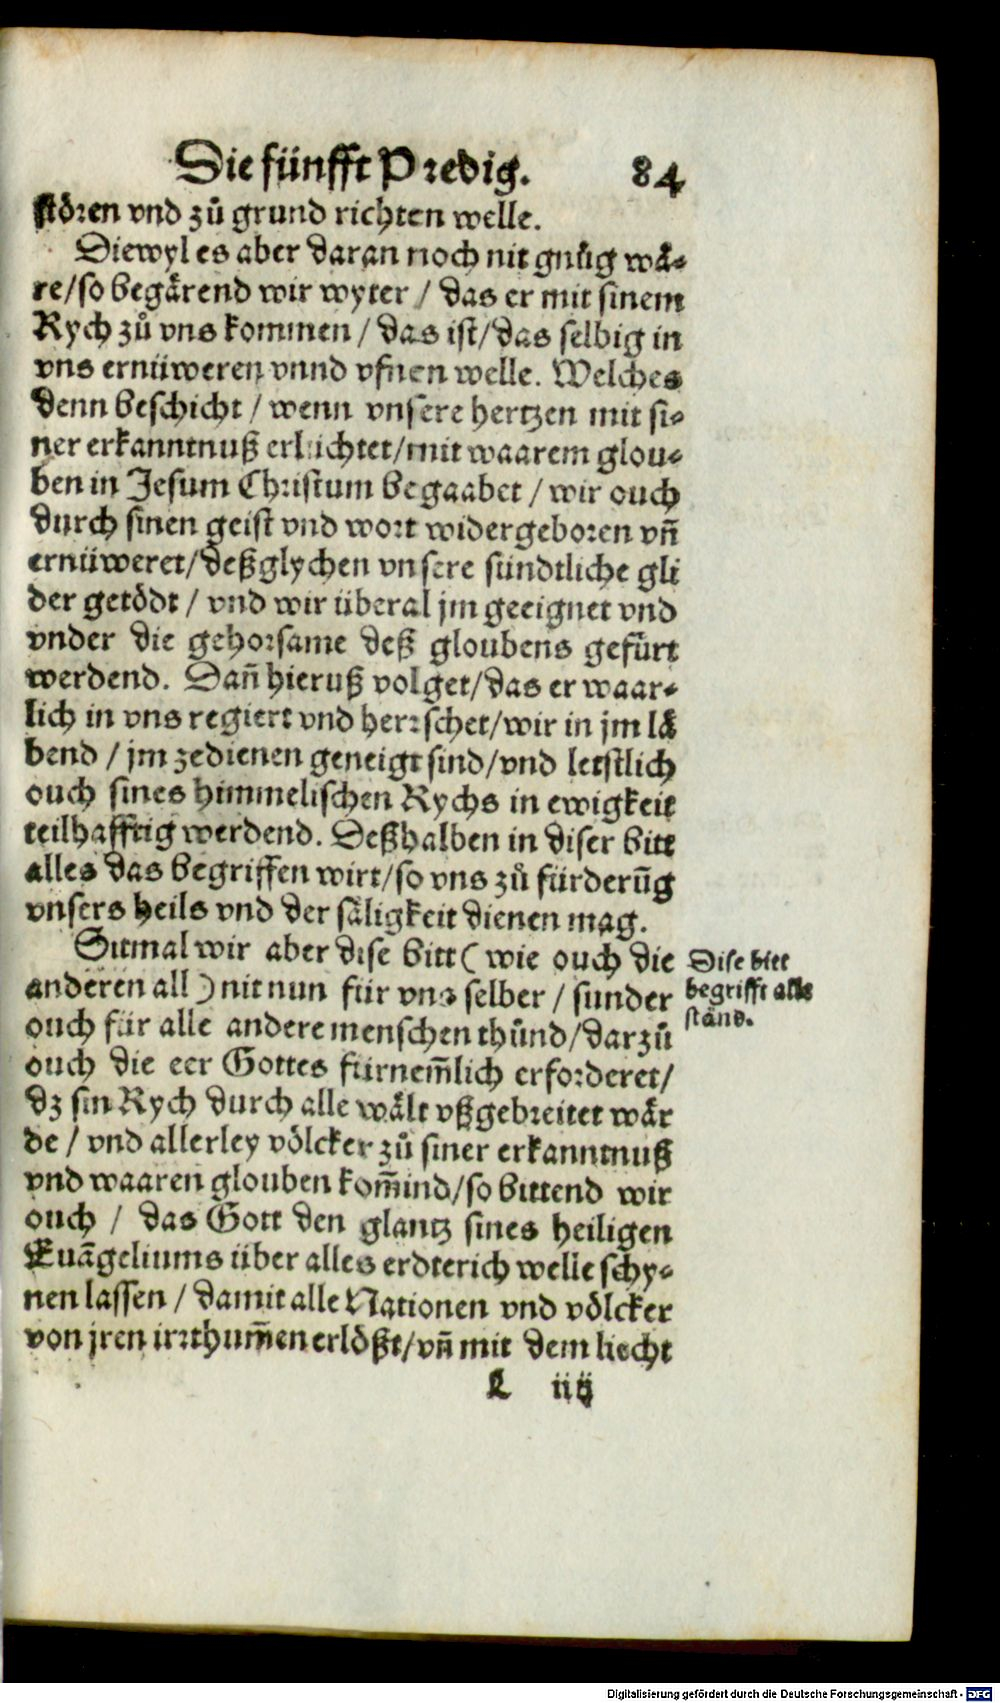 Die fünfft Predig. 84
stören vnd zů grund richten welle.
Diewyl es aber daran noch nit gnůg wä⸗
re/so begärend wir wyter / das er mit sinem
Rych zů vns kommen / das ist/das selbig in
vns ernüweren vnnd vfnen welle. Welches
denn beschicht / wenn vnsere hertzen mit si⸗
ner erkanntnuß erlüchtet/mit waarem glou⸗
ben in Jesum Christum begaabet / wir ouch
durch sinen geist vnd wort widergeboren vñ
ernüweret/deßglychen vnsere sündtliche gli
der getödt / vnd wir überal jm geeignet vnd
vnder die gehorsame deß gloubens gefürt
werdend. Dañ hieruß volget/das er waar⸗
lich in vns regiert vnd herrschet/wir in jm lä
bend / jm zedienen geneigt sind/vnd letstlich
ouch sines himmelischen Rychs in ewigkeit
teilhafftig werdend. Deßhalben in diser bitt
alles das begriffen wirt/so vns zů fürderũg
vnsers heils vnd der säligkeit dienen mag.
Sitmal wir aber dise bitt ( wie ouch die
anderen all ) nit nun für vns selber / sunder
ouch für alle andere menschen thůnd/darzů
ouch die eer Gottes fürnem̃lich erforderet/
dz sin Rych durch alle wält vßgebreitet wär
de / vnd allerley völcker zů siner erkanntnuß
vnd waaren glouben kom̃ind/so bittend wir
ouch / das Gott den glantz sines heiligen
Euãgeliums über alles erdterich welle schy⸗
nen lassen / damit alle Nationen vnd völcker
von jren irrthum̃en erlößt/vñ mit dem liecht
L iiij
Dise bitt
begrifft alle
ständ.
Digitalisierung gefördert durch die Deutsche Forschungsgemeinschaft - DFG